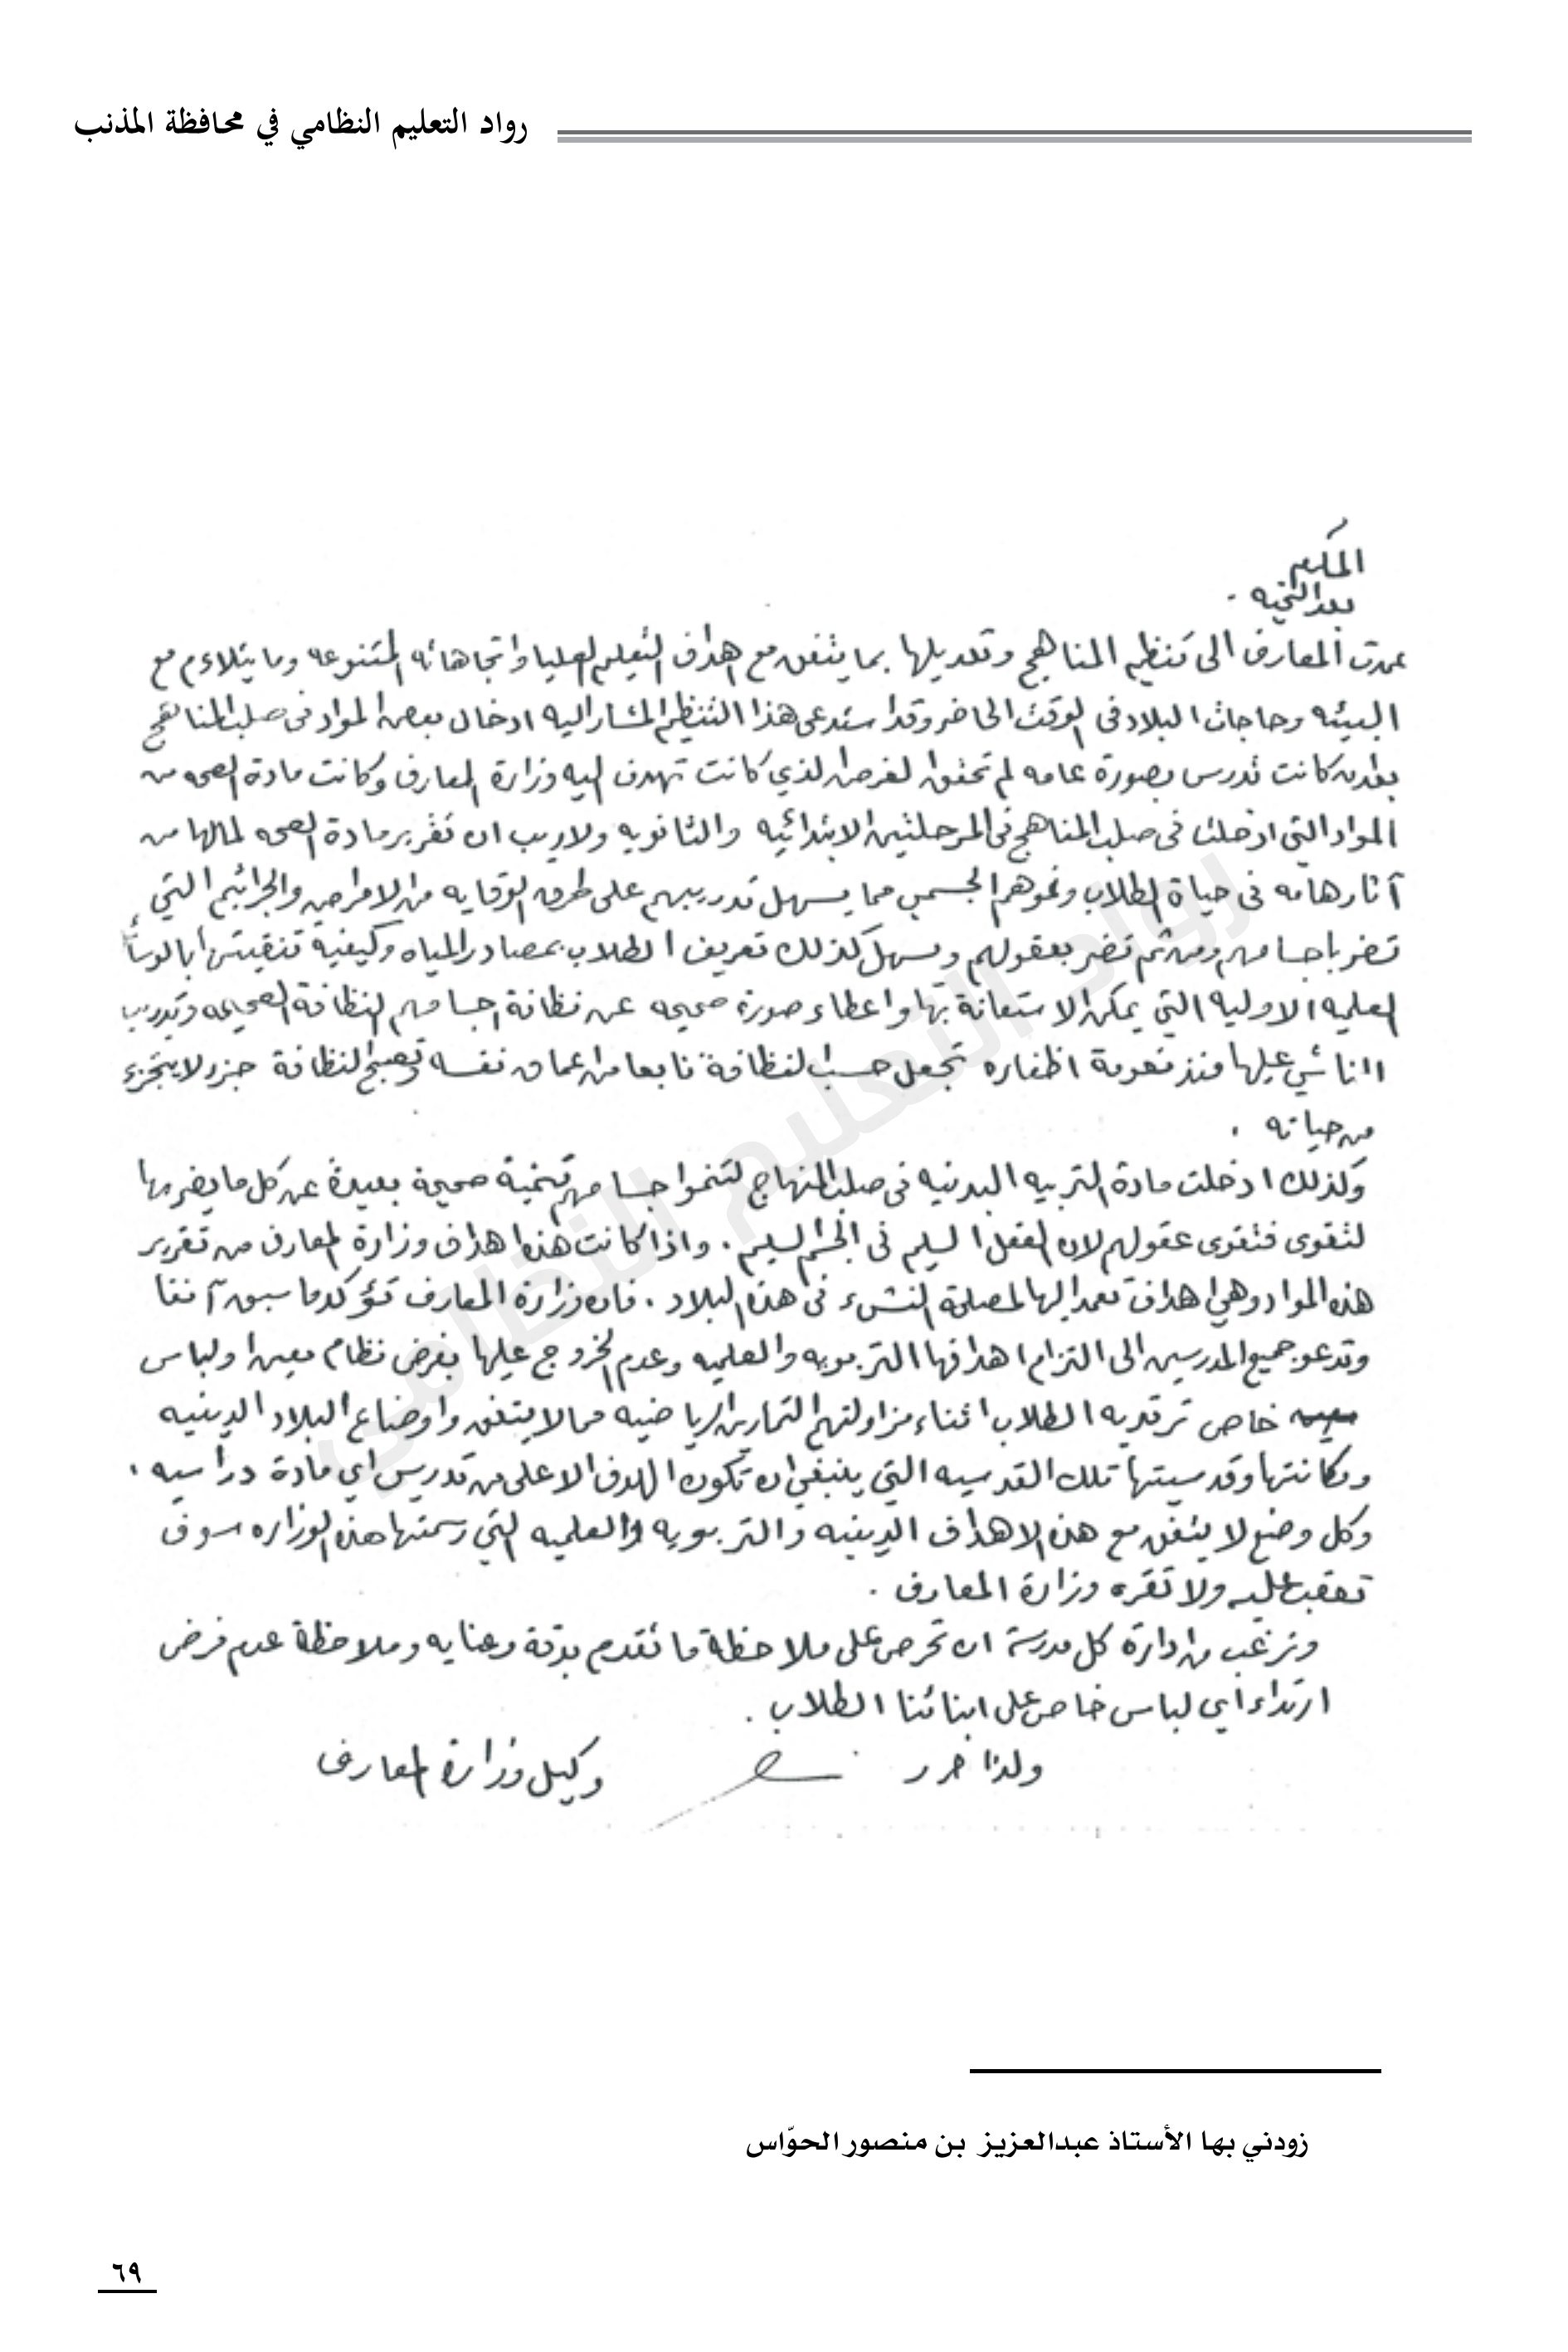 رواد التعليم النظامي في محافظة المذنب
المكرم
بعد التحيه .
عمدت المعارف الى تنظيم المناهج وتعديلها بما يتفق مع اهداف التعليم العليا واتجاهاته المتنوعه وما يتلاءم مع
البيئه وحاجات البلاد في الوقت الحاضر وقد استدعى هذا التنظيم المشار اليه ادخال بعض المواد في صلب المناهج
بعد ان كانت تدرس بصورة عامه لم تحقق الغرض الذي كانت تهدف اليه وزارة المعارف وكانت مادة الصحه من
المواد التي ادخلت في صلب المناهج في المرحلتين الابتدائيه والثانويه ولاريب ان تقرير مادة الصحه لما لها من
آثار هامه في حياة الطلاب ونموهم الجسمي مما يسهل تدريبهم على طرق الوقايه من الامراض والجراثيم التي
تضر باجسامهم ومن ثم تضر بعقولهم ويسهل كذلك تعريف الطلاب بمصادر المياه وكيفية تنقيتها بالوسائل
العلميه الاوليه التي يمكن الاستعانة بها واعطاء صورة صحيحه عن نظافة اجسامهم النظافة الصحيحه وتدريب
الناشئ عليها منذ نعومة اظفاره تجعل حب النظافة نابعا من اعماق نفسه وتصبح النظافة جزء لا يتجزء
من حياته .
وكذلك ادخلت مادة التربيه البدنيه في صلب المنهاج لتنموا جسامهم تنمية صحيحة بعيدة عن كل ما يضر بها
لتقوى فتقوى عقولهم لان العقل السليم في الجسم السليم . واذا كانت هذه اهداف وزارة المعارف من تقرير
هذه المواد وهي اهداف تعمد اليها لمصلحة النشء في هذه البلاد . فان وزارة المعارف تؤكد ما سبق آنفا
وتدعو جميع المدرسين الى التزام اهدافها التربويه والعلميه وعدم الخروج عليها بفرض نظام معين او لباس
خاص ترتديه الطلاب اثناء مزاولتهم التمارين الرياضيه مما لا يتفق واوضاع البلاد الدينيه
ومكانتها وقدسيتها تلك القدسيه التي ينبغي ان تكون الهدف الاعلى من تدريس اي مادة دراسيه .
وكل وضع لا يتفق مع هذه الاهداف الدينيه والتربويه والعلميه التي رسمتها هذه الوزاره سوف
تعقب عليه ولا تقره وزارة المعارف .
ونرغب من ادارة كل مدرسة ان تحرص على ملاحظة ما تقدم بدقة وعنايه وملاحظة عدم فرض
ارتداء اي لباس خاص على ابنائنا الطلاب .
ولذا حرر
وكيل وزارة المعارف
رواد التعليم النظامي
زودني بها الأستاذ عبدالعزيز بن منصور الحوّاس
٦٩